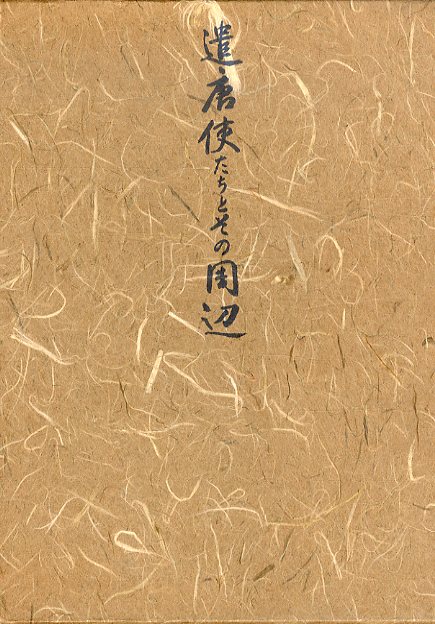 遣唐使たちとその周辺